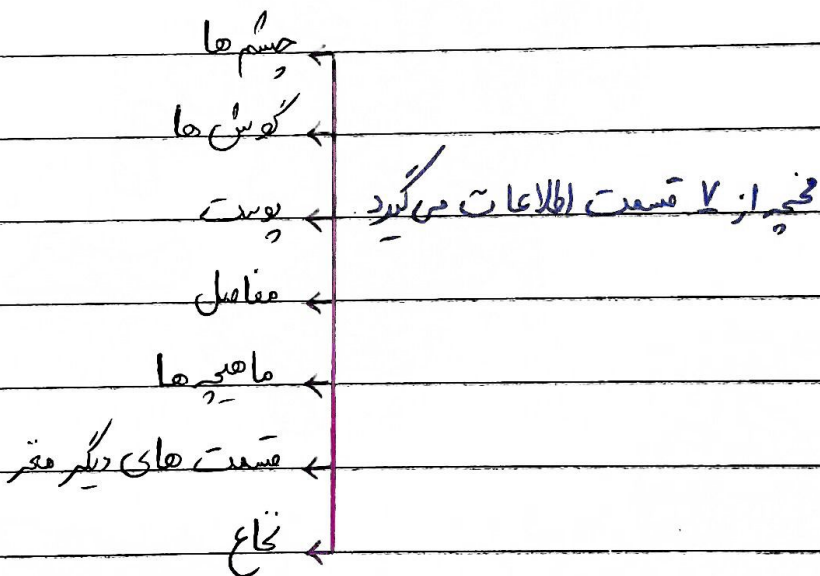 مخچه از ۷ قسمت اطلاعات می‌گیرد
چشم ها
گوش ها
پوست
مفاصل
ماهیچه ها
قسمت های دیگر مغز
نخاع